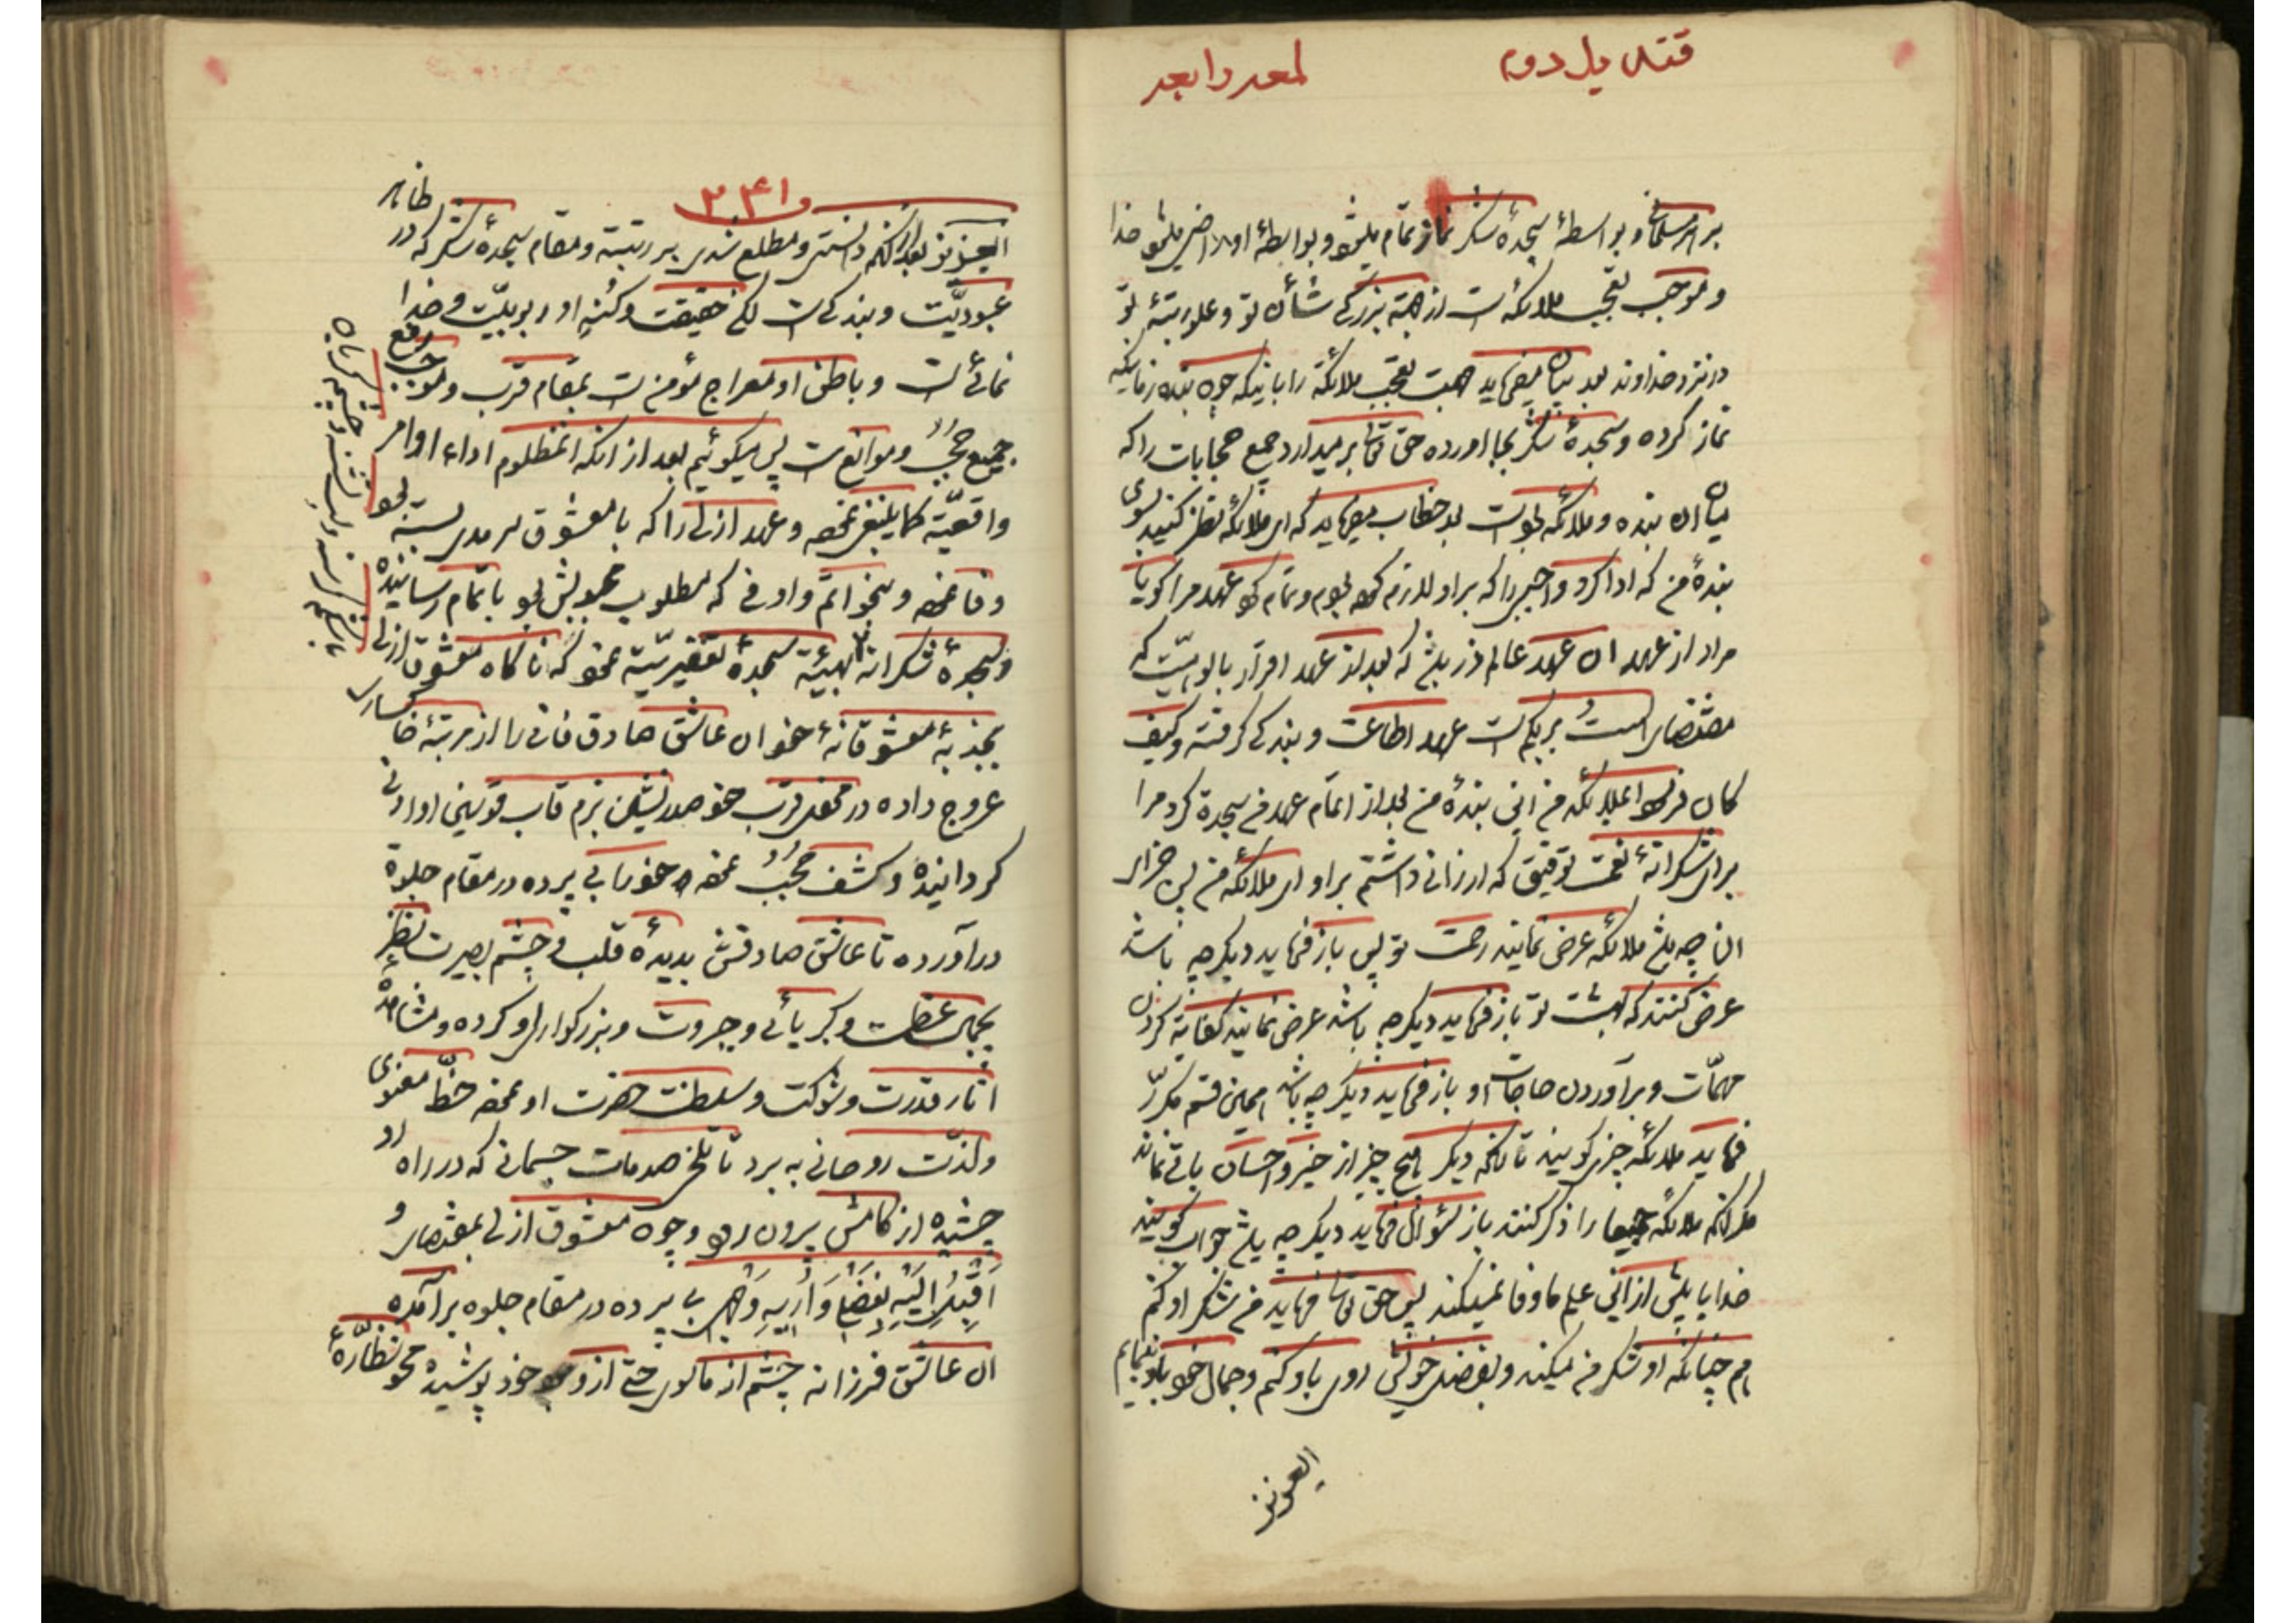 قندیل دوم
لمعه رابعه
بر هر مسلمان و بواسطهٔ سجدهٔ شکر نماز تمام میشود و بواسطهٔ او راضی میشود خدا
و موجب تعجب ملائکه است از جهة بزرگی شأن تو و علو رتبهٔ تو
در نزد خداوند بعد بیان میفرماید جهت تعجب ملائکه را باینکه چون بنده زمانیکه
نماز کرده و سجدهٔ شکر بجا آورده حق تعالی برمیدارد جمیع حجابات را که
میان آن بنده و ملائکه است بعد خطاب میفرماید که ای ملائکه نظر کنید بسوی
بندهٔ من که ادا کرد واجبی را که بر او لازم کرده بودم و تمام کرد عهد مرا گویا
مراد از عهد آن عهد عالم ذر باشد که بعد از عهد اقرار بالوهیّت که
مقتضای الستُ بربکم است عهد اطاعت و بندگی گرفته و کیف
کان فرمود ایملائکه من این بندهٔ من بعد از اتمام عهد من سجدة کرد مرا
برای شکرانهٔ نعمت توفیق که ارزانی داشتم بر او ای ملائکه من پس جزای
آن چه باشد ملائکه عرض نمایند رحمت تو پس باز فرماید دیگر چه باشد
عرض کنند که بهشت تو باز فرماید دیگر چه باشد عرض نمایند کفایة کردن
مهمّات و برآوردن حاجات او باز فرماید دیگر چه باشد همین قسم مکرّر
فرماید ملائکه چیزی گویند تا آنکه دیگر هیچ چیز از خیر و احسان باقی نماند
مگر آنکه ملائکه جمیعا را ذکر کنند باز سؤال فرماید دیگر چه باشد جواب گویند
خدایا بیش از این علم ما وفا نمیکند پس حق تعالی فرماید من شکر او کنم
هم چنانکه او شکر من میکند و بفضل خویش روی باو کنم و جمال خود باو نمایم
ایعزیز
۲۴۱
ایعزیز بعد از آنکه دانستی و مطلع شدی بر رتبة و مقام سجدهٔ شکر که در ظاهر
عبودیّت و بندگی است لکن حقیقت و کنه او ربوبیّت و خدا
نمائی است و باطن او معراج مؤمن است بمقام قرب و موجب رفع
جمیع حجب و موانع است پس میگوئیم بعد از آنکه آنمظلوم اداء اوامر
واقعیّه کما ینبغی نموده و عهد ازلی را که با معشوق سرمدی بسته بود
وفا نموده و بنحو اتمّ و اوفی که مطلوب محبوبش بود باتمام رسانیده
و سجدهٔ شکرانه بهیئة سجدهٔ تعفیریّه نمود که ناگاه معشوق ازلی
بجذبهٔ معشوقانهٔ خود آن عاشق صادق فانی را از مرتبهٔ خاکساری
عروج داده در محفل قرب خود صدرنشین بزم قاب قوسین او ادنی
گردانیده و کشف حجب نموده خود را بی پرده در مقام جلوة
درآورده تا عاشق صادقش بدیدهٔ قلب و چشم بصیرت نظر
بجمال عظمت و کبریائی و جبروت و بزرگواری او کرده و مشاهدهٔ
آثار قدرت و شوکت و سلطنت حضرت او نموده حظّ معنوی
و لذّت روحانی به برد تا تلخی صدمات جسمانی که در راه او
چشیده از کامش بیرون رود و چون معشوق ازلی بمقتضای و
اَقْبِلُ اِلَیْهِ بِفَضْلی وَ اُریهِ وَجْهی بی پرده در مقام جلوه برآمده
آن عاشق فرزانه چشم از ماسوی حتی از وجود خود پوشیده محو نظّارهٔ